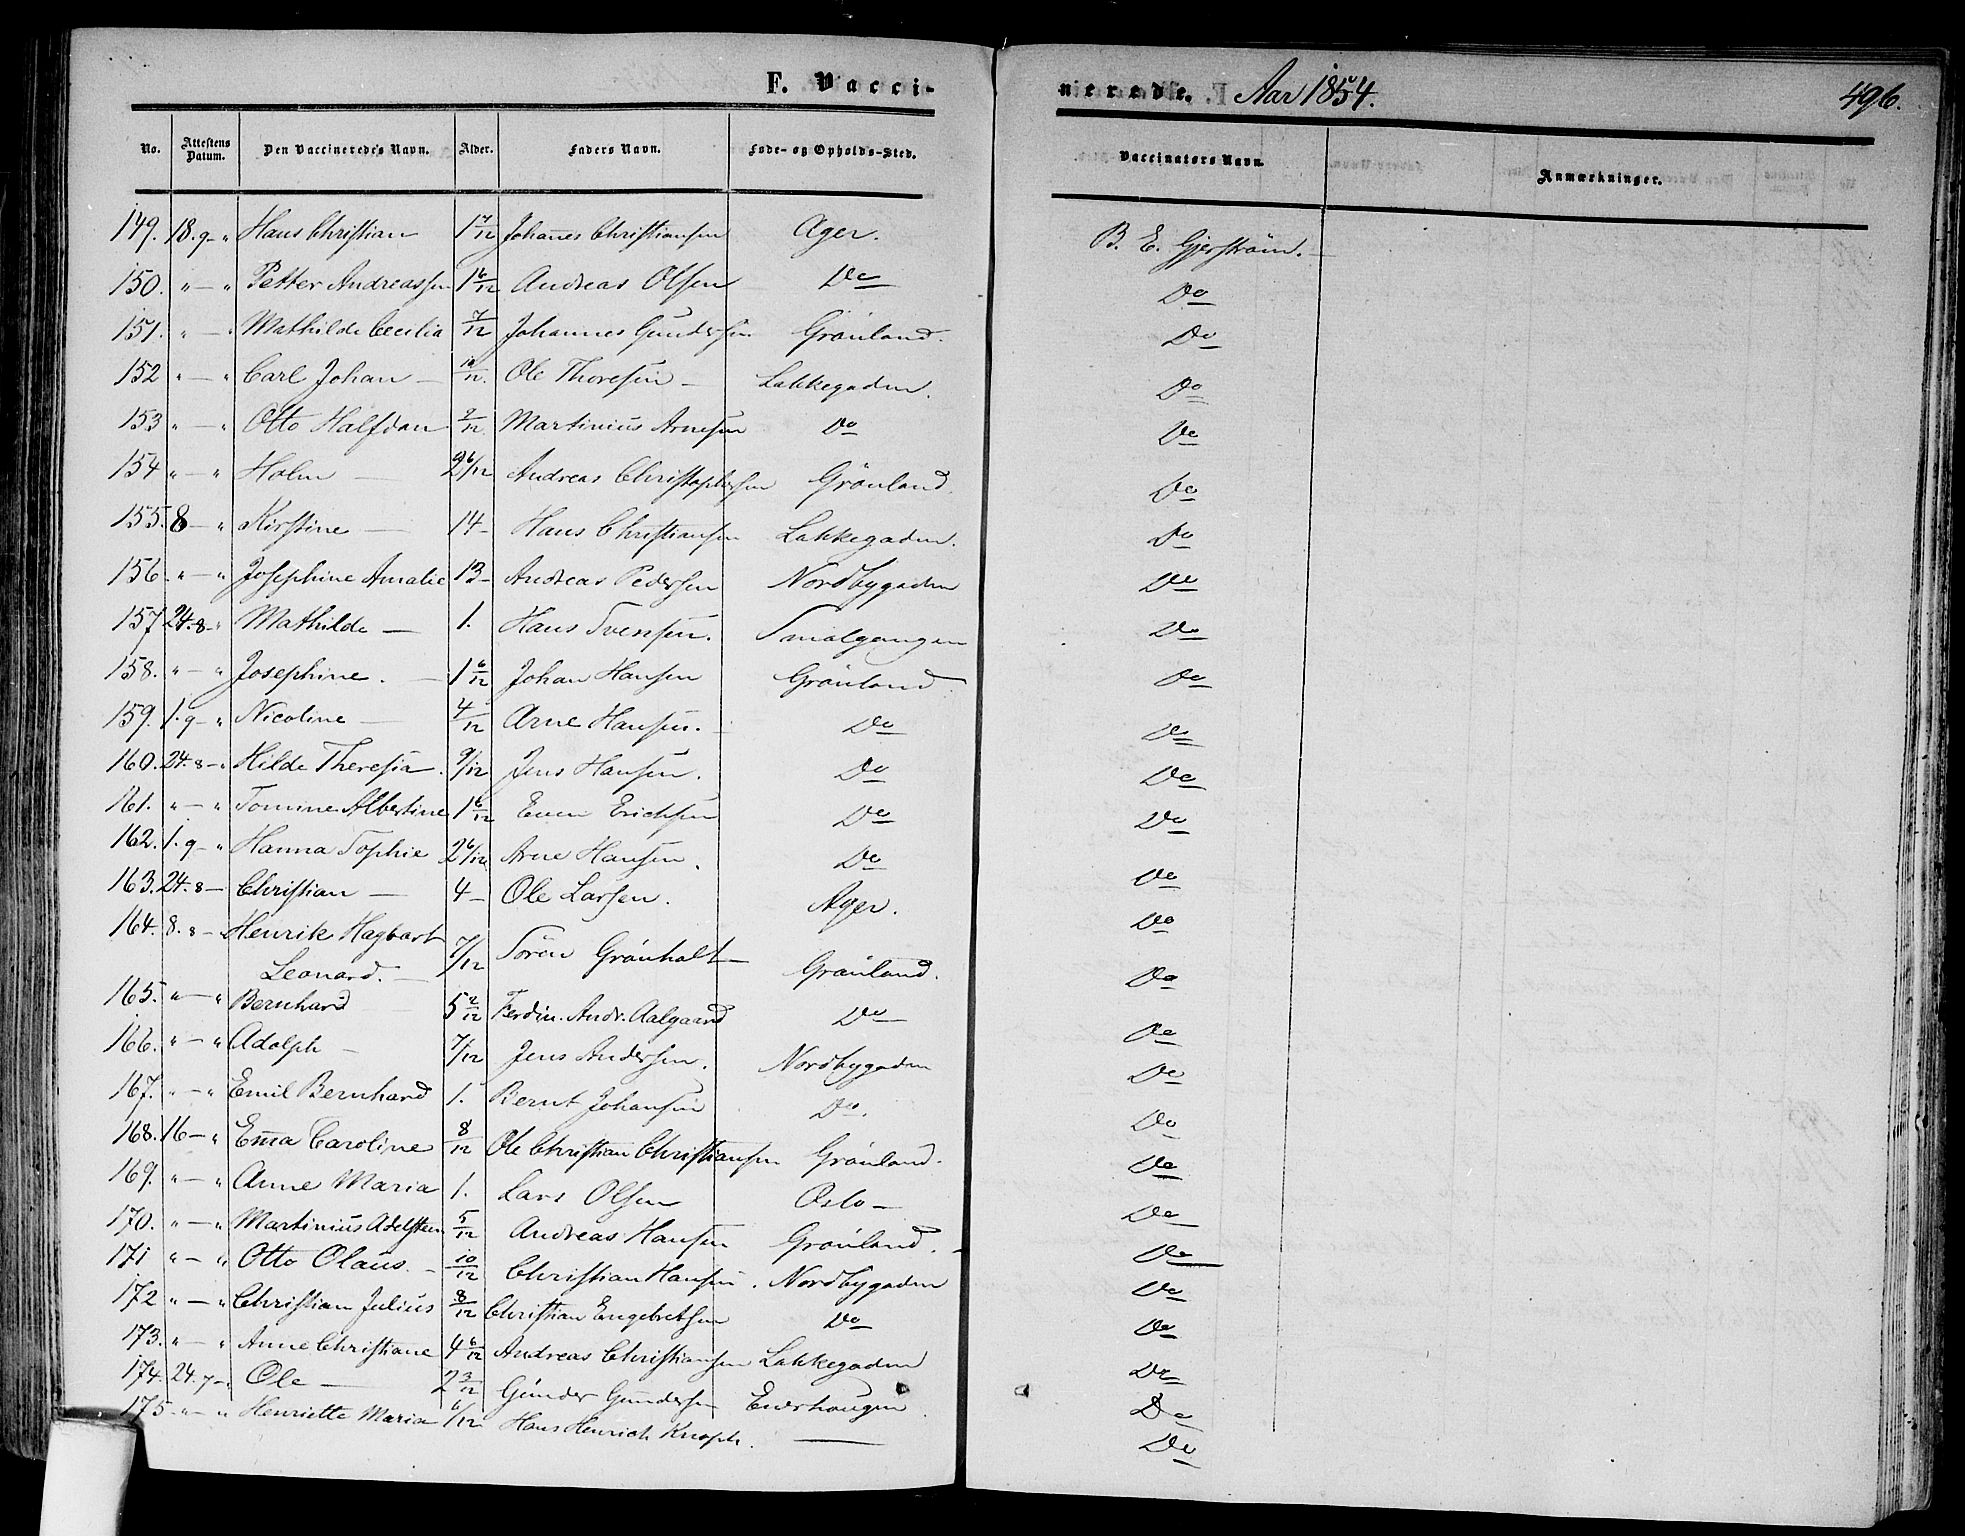 F. Vacci-
nerede. Aar 1854. 496.
No. Attestens Datum. Den Vaccineredes Navn. Alder. Faders Navn. Føde- og Opholds-Sted. Vaccinators Navn. Anmærkninger.
149. 18.9 - " Hans Christian 1 7/12 Johannes Christiansen Ager. B. E. Gjerström.
150. " - " Petter Andreassen 1 6/12 Andreas Olsen Do Do
151. " - " Mathilde Cecilia 7/12 Johannes Gundersen Grönland. Do
152 " - " Carl Johan - 10/12. Ole Thoresen - Lakkegaden. Do
153 " - " Otto Halfdan 9/12 Martinius Arnesen Do Do
154 " - " Holm - 2 6/12 Andreas Christophersen Grönland. Do
155. 8 - " Kirstine - 14 - Hans Christiansen Lakkegaden. Do
156. " - " Josephine Amalie 13 - Andreas Pedersen Nordbygaden Do
157 24.8 - " Mathilde - 1. Hans Svensen. Smalgangen Do
158. " - " Josephine. - 1 6/12 Johan Hansen Grönland. Do
159. 1.9 - " Nicoline - 4/12 Arne Hansen. - Do Do
160. 24.8 - " Hilde Theresia. 9/12 Jens Hansen. Do Do
161. " - " Tomine Albertine 1 6/12 Even Erichsen Do Do
162. 1.9 - " Hanna Sophie 2 6/12 Arne Hansen. Do Do
163. 24.8 - Christian - 4 - Ole Larsen. Ager. Do
164. 8.8 - Henrik Hagbart
Leonard. - 7/12 Sören Grönholt - Grönland. Do
165. " - " Bernhard 5 2/12 Ferdin. Andr. Aalgaard Do Do
166. " - " Adolph - 7/12 Jens Andersen. Nordbygaden Do
167. " - " Emil Bernhard 1. Bernt Johansen Do. Do
168. 16 - " Emma Caroline 8/12 Ole Christian Christiansen Grönland. Do
169. " - " Anne Maria 1. Lars Olsen Oslo - Do
170. " - " Martinius Adelsteen 5/12 Andreas Hansen Grönland. - Do
171 " - " Otto Olaus. - 10/12 Christian Hansen. Nordbygaden Do
172 " - " Christian Julius 8/12 Christian Engebretsen Do Do
173. " - " Anne Christiane 4 6/12 Andreas Christiansen Lakkegaden Do
174. 24.7 - " Ole - 2 3/12 Gunder Gundersen Enerhaugen Do
175 " - " Henriette Maria 6/12 Hans Henrich Knoph. - Do